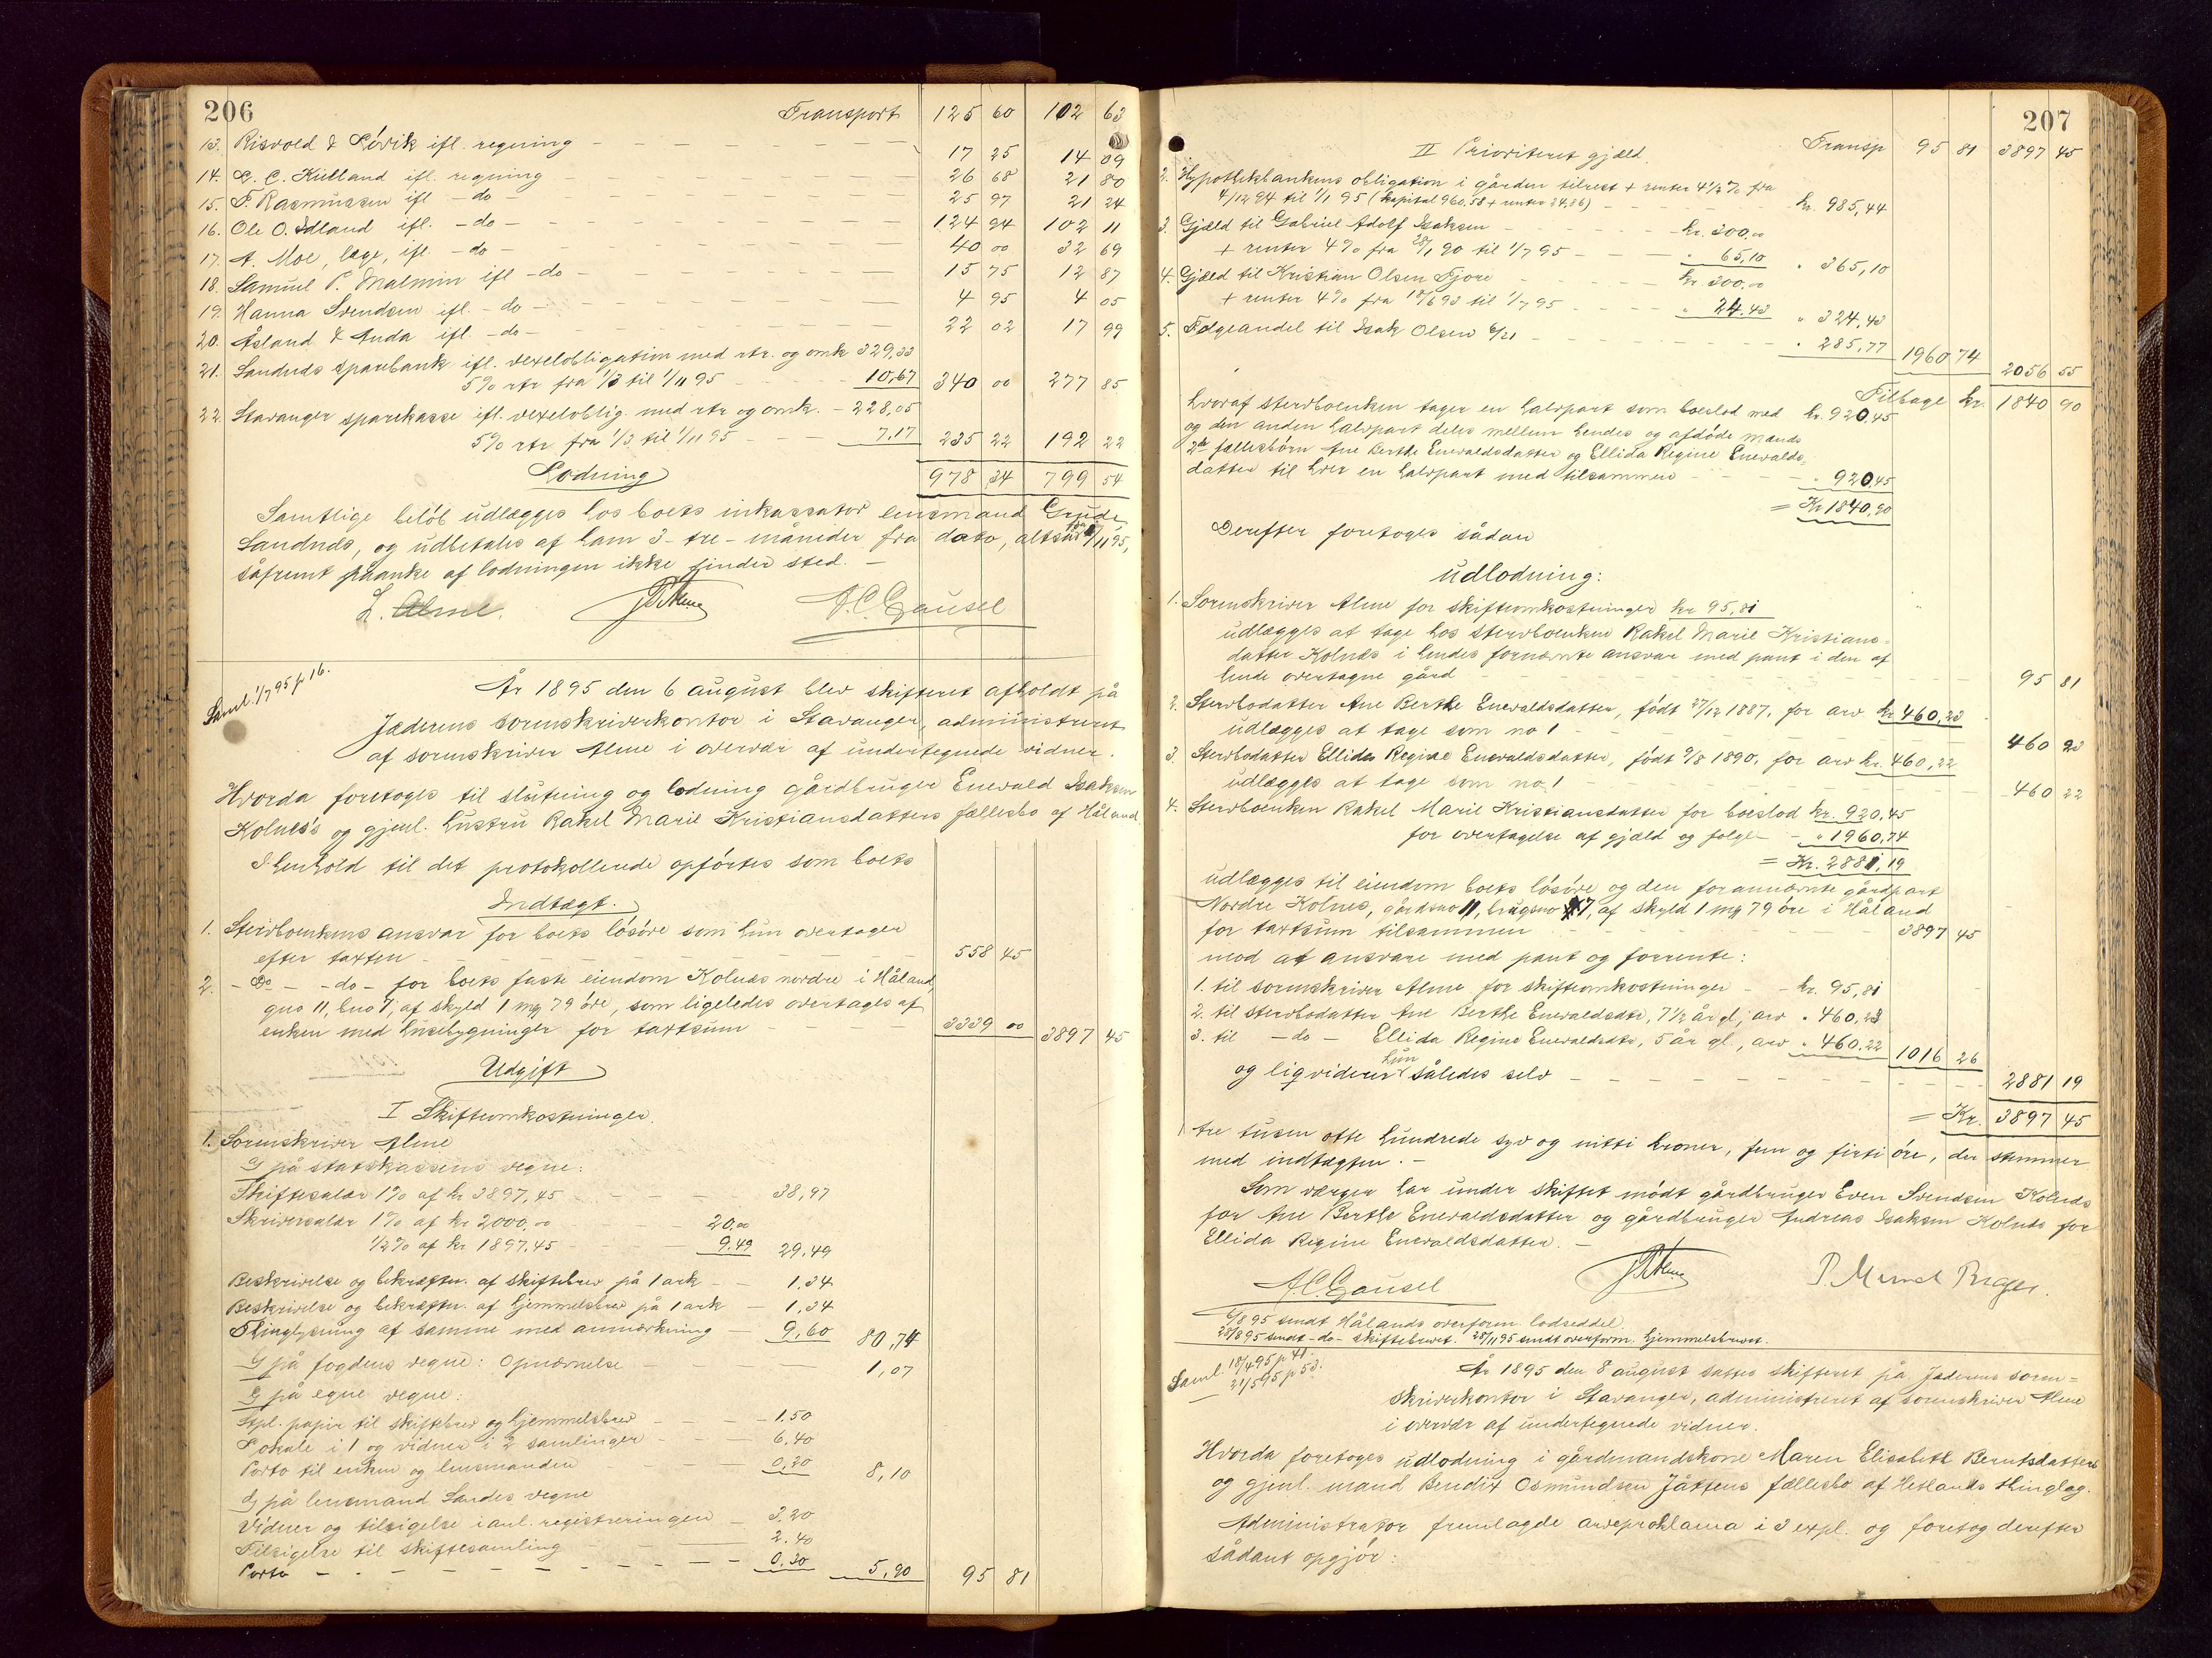 206
Transport 125 60 102 63
13. Risvold & Lövik ifl. regning 17 25 14 09
14. G. C. Kielland ifl. regning 26 68 21 80
15. F. Rasmussen ifl - do - 25 97 21 24
16. Ole O. Idland ifl. - do - 124 94 102 11
17. A. Moe, læge, ifl. - do - 40 00 32 69
18. Samuel P. Malmin ifl - do - 15 75 12 87
19. Hanna Svendsen ifl. - do - 4 95 4 05
20. Åsland & Auda ifl. - do - 22 02 17 99
21. Sandnds sparebank ifl. vexelobligation med rtr. og omk 329,33
5% rtr fra 1/3 til 1/11 95 10,67 340 00 277 85
22. Stavanger sparekasse ifl. vexeloblig. med rtr og omk. - 228,05
5% rtr. fra 1/3 til 1/11 95 7,17 235 22 192 22
Lodning 978 34 799 54
Samtlige beløb udlægges hos boets inkassator lensmand Grude,
Sandnds, og udbetales af ham 3 - tre - måneder fra dato, altså fra 6/11 95,
såfremt påanke af lodningen ikke finder sted. -
L. Alme. A.C. Gausel
Saml. 1/7 95 p. 16.
År 1895 den 6 august blev skifteret afholdt på
Jæderens sorenskriverkontor i Stavanger, administreret
af sorenskriver Alme i overvær af undertegnede vidner.
Hvorda foretoges til slutning og lodning gårdbruger Enevald Isaksen
Kolnes's og gjenl. hustru Rakel Marie Kristiansdatters fællesbo af Håland.
I henhold til det protokollerede opførtes som boets
Indtægt.
1. Stervboenkens ansvar for boets løsøre som hun overtager
efter taxten - 558 45
2. - Do - - do - for boets faste eiendom Kolnes nordre i Håland,
gno 11, bno 7, af skyld 1 mrk 79 øre, som ligeledes overtages af
enken med husebygninger for taxtsum 3339 00 3897 45
Udgift
I Skifteomkostninger.
1. Sorenskriver Alme
a) på statskassens vegne:
Skiftesalær 1% af kr 3897,45 38,97
Skriversalær 1% af kr 2000,00 20,00
1/2% af kr 1897,45 9,49 29,49
Beskrivelse og bekræftn. af skiftebrev på 1 ark 1.34
Beskrivelse og bekræftn. af hjemmelsbrev på 1 ark 1.34
Thinglysning af samme med anmærkning 9,60 80,74
b) på fogdens vegne: Opnævnelse 1,07
c) på egne vegne:
Stpl. papir til skiftebrev og hjemmelsbrev 1.50
Lokale i 1 og vidner i 2 samlinger 6.40
Porto til enken og lensmanden 0.20 8,10
d) på lensmand Sandes vegne
Vidner og tilsigelse i anl. registreringen 3.20
Tilsigelse til skiftesamling 2.40
Porto 0.30 5,90 95 81
207
II Prioriteret gjæld. Transp 95 81 3897 45
2. Hypothekbankens obligation i gården tilrest + renter 4 1/2% fra
4/12 94 til 1/7 95 (kapital 960.58 + renter 24,86) kr. 985,44
3. Gjæld til Gabriel Adolf Isaksen kr. 300.00
+ renter 4% fra 28/1 90 til 1/7 95 " 65,10 " 365,10
4. Gjæld til Kristian Olsen Tjore kr 300.00
+ renter 4% fra 18/6 93 til 1/7 95 " 24.43 " 324,43
5. Følgeandel til Isak Olsen 6/21 " 285,77 1960 74 2056 55
Tilbage kr. 1840 90
hvoraf stervboenken tager en halvpart som boeslod med kr. 920,45
og den anden halvpart deles mellem hendes og afdøde mands
2de fællesbørn Ane Berthe Enevaldsdatter og Ellida Regine Enevalds-
datter til hver en halvpart med tilsammen " 920,45
= Kr 1840,90
Derefter foretoges sådan
udlodning:
1. Sorenskriver Alme for skifteomkostninger kr 95,81
udlægges at tage hos stervboenken Rakel Marie Kristians-
datter Kolnes i hendes fornævnte ansvar med pant i den af
hende overtagne gård 95 81
2. Stervbodatter Ane Berthe Enevaldsdatter, født 27/12 1887, for arv kr 460,23
udlægges at tage som no 1 460 23
3. Stervbodatter Ellida Regine Enevaldsdatter, født 9/8 1890, for arv kr. 460,22
udlægges at tage som no. 1 460 22
4. Stervboenken Rakel Marie Kristiansdatter for boeslod kr. 920,45
for overtagelse af gjæld og følge " 1960,74
= Kr. 2881,19
udlægges til eiendom boets løsøre og den forannævnte gårdpart
Nordre Kolnes, gårdsno 11, brugsno 7, af skyld 1 mrk 79 øre i Håland
for taxtsum tilsammen 3897 45
mod at ansvare med pant og forrente:
1. til sorenskriver Alme for skifteomkostninger - kr. 95,81
2. til stervbodatter Ane Berthe Enevaldsdtr, 7 1/2 år gl, arv " 460,23
3. til - do - Ellida Regine Enevaldsdtr, 5 år gl., arv " 460.22 1016 26
og ligviderer hun således selv 2881 19
= Kr. 3897 45
tre tusen otte hundrede syv og nitti kroner, fem og firti øre, der stemmer
med indtægten. -
Som værger har under skiftet mødt gårdbruger Even Svendsen Kolnes
for Ane Berthe Enevaldsdatter og gårdbruger Andreas Isaksen Kolnes for
Ellida Regine Enevaldsdatter. -
A.C. Gausel
6/8 95 sendt Hålands overform. lodseddel.
28/8 95 sendt - do - skiftebrevet. 28/11 95 sendt overform. hjemmelsbrevet.
Saml. 18/4 95 p 41.
21/5 95 p 53.
År 1895 den 8 august sattes skifteret på Jæderens soren-
skriverkontor i Stavanger, administreret af sorenskriver Alme
i overvær af undertegnede vidner.
Hvorda foretoges udlodning i gårdmandskone Maren Elisabeth Berntsdatters
og gjenl. mand Bendix Osmundsen Jåttens fællesbo af Hetlands thinglag.
Administrator fremlagde arveproklama i 3 expl. og foretog derefter
sådant opgjør: